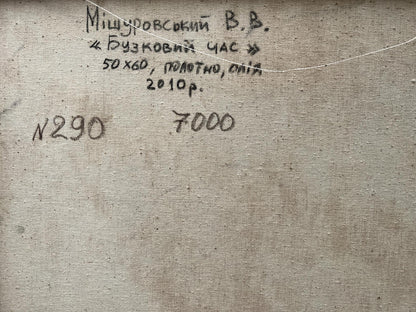 Міщуровський В.В.
«Бузковий час»
50х60, полотно, олія
2010р.
N290 7000